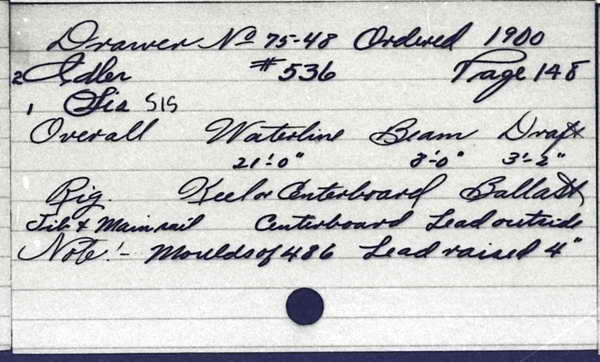 Drawer No 75-48 Ordered 1900
2 Adler #536 Page 148
1 Sis SIS
Overall Waterline Beam Draft
21'-0" 8'-0" 3'-2"
Rig. Keel or Centerboard Ballast
Jib & Mainsail Centerboard Lead outside
Note!- Moulds of 486 Lead raised 4"